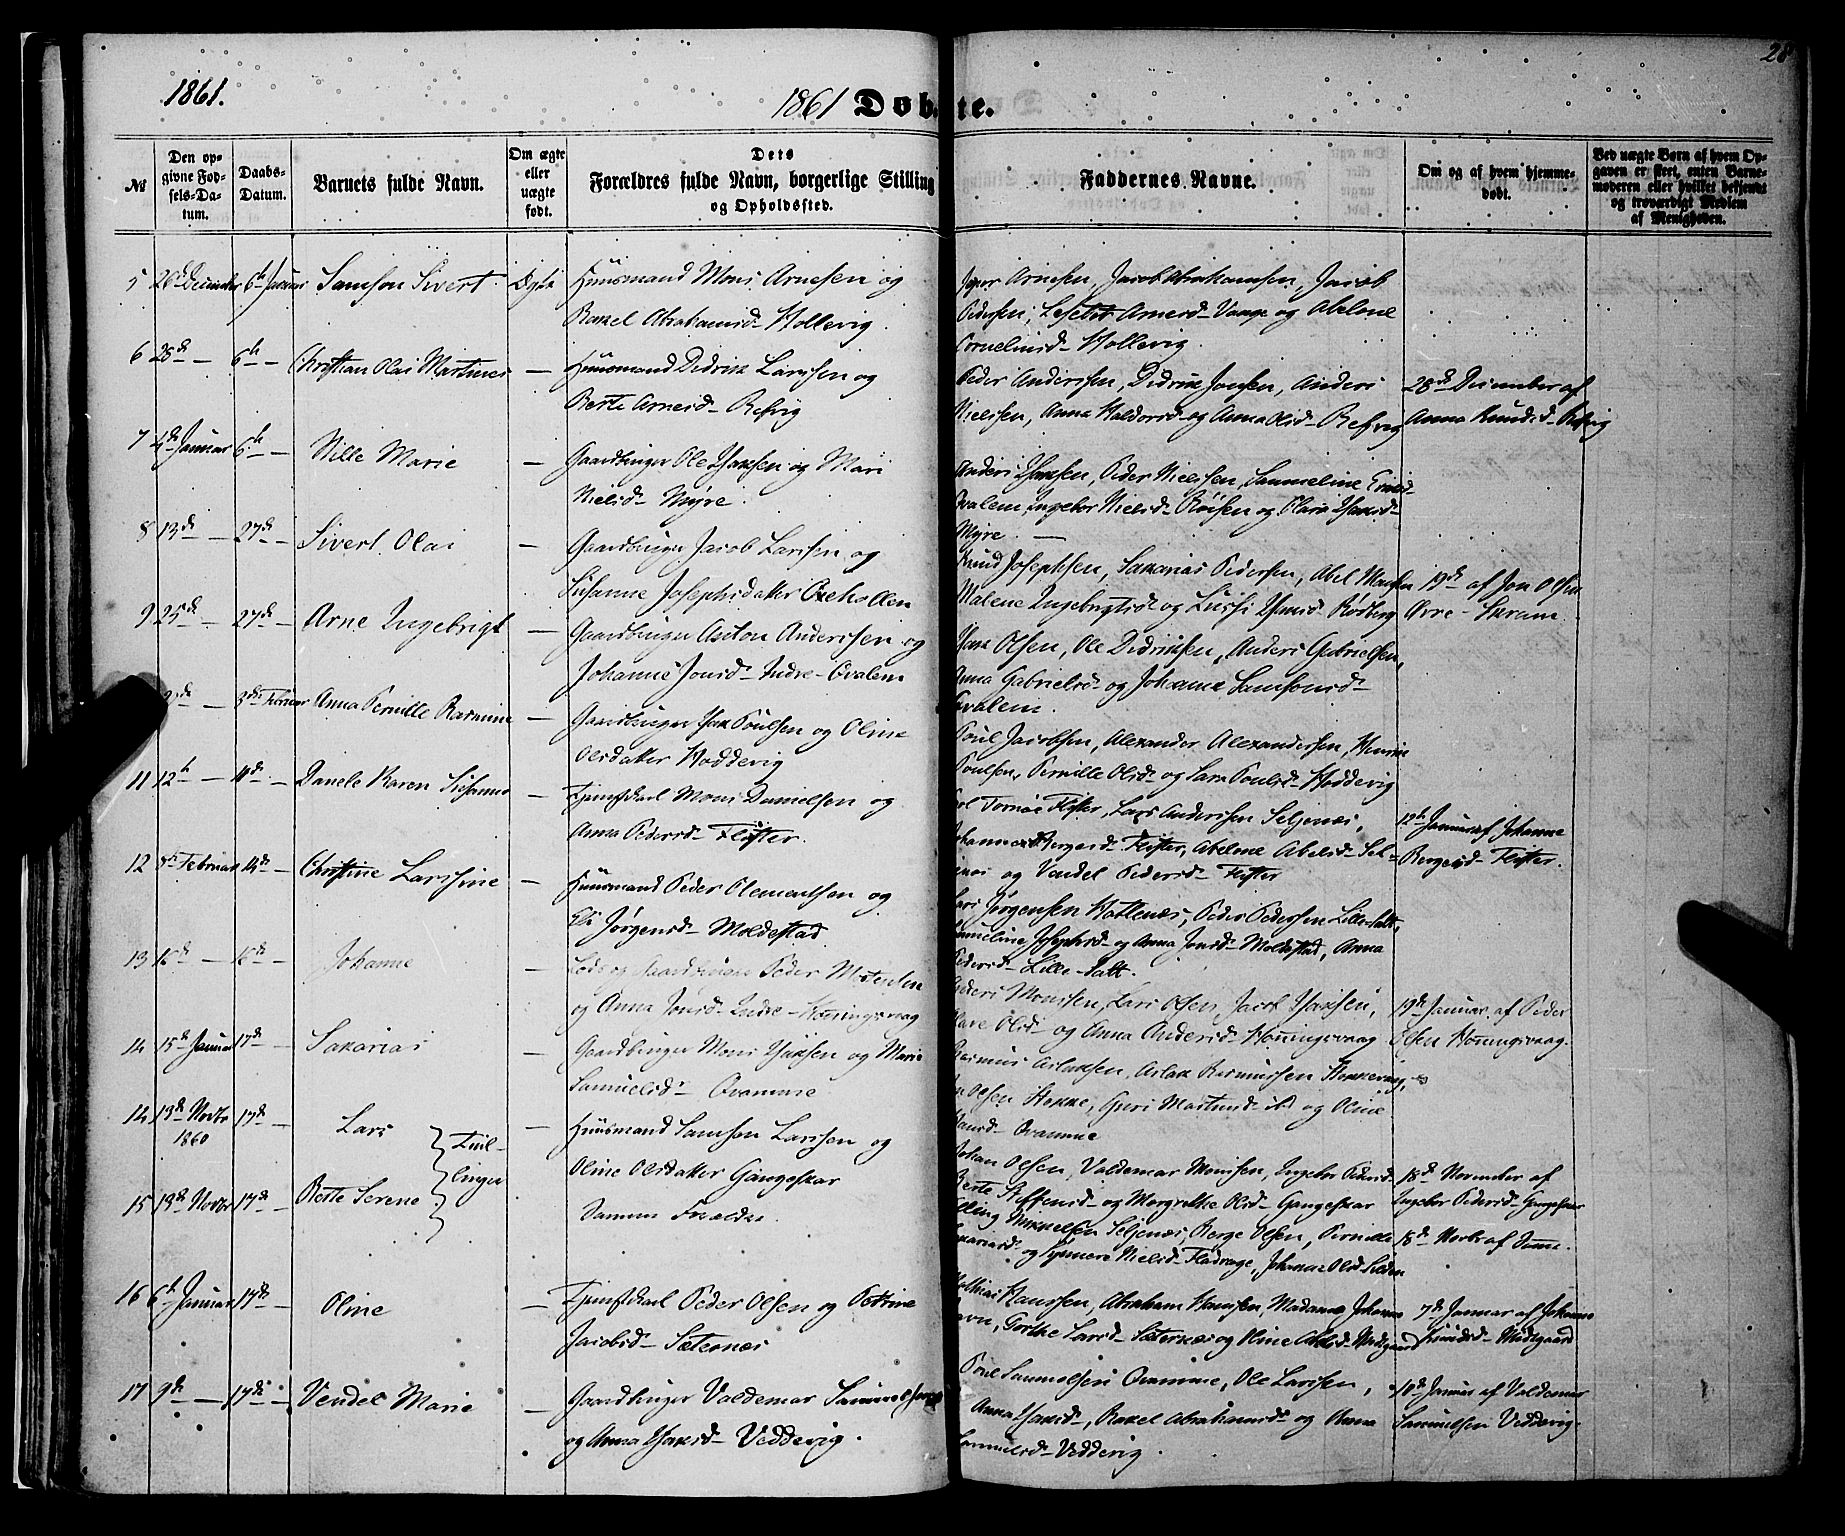 28
1861.
1861 Døbte.
№
Den opgivne Fødsels-Datum.
Daabs-Datum.
Barnets fulde Navn.
Om ægte eller uægte født.
Dets Forældres fulde Navn, borgerlige Stilling og Opholdssted.
Faddernes Navne.
Om og af hvem hjemmedøbt.
Ved uægte Børn af hvem Opgaven er skeet, enten Barnemoderen eller hvilket bekjendt og troværdigt Medlem af Menigheden.
5 26de December 6th Januar Samson Sivert Ægte Huusmand Mons Arnesen og
Rakel Abrahamsd. Hollevig.
Arnesen, Jacob Abrahamsen, Jacob
Pedersen, Lisebet Arnesd. Vaage og Abelone
Corneliusd. Hollevig.
6 28de — 6th — Christian Olai Martinus — Huusmand Didrik Larssen og
Berte Arnesd. Refvig
Peder Anderssen, Didrik Jonsen, Anders
Nielssen, Anna Haldorsd. og Anna Olsd. Refvig
28de December af
Anna Knudsd. Refvig
7 4de Januar 6th — Nille Marie — Gaardbruger Ole Isaksen og Mari
Nielsd. Myre.
Anders Isaksen, Peder Nielssen, Sammeline
Qvalem, Ingebor Nielsd. Røisen og Isaksd.
Myre. —
8 13de — 27de — Sivert Olai — Gaardbruger Jacob Larssen og
Susanne Josephsdatter Oxehollen
Knud Josephsen, Sakarias Pedersen, Abel
Malene Ingebrigtsd. og Lussi Isaksd. Rødberg
19de af Jon Olsen
9 25de — 27de — Arne Ingebrigt — Gaardbruger Anton Anderssen og
Johanne Jonsd. Indre-Qvalem
Isak Olsen, Ole Didriksen, Anders Gabrielsen,
Anna Gabrielsd. og Johanne Samsonsd.
Qvalem.
3die Februar Anna Pernille Rasmine — Gaardbruger Isak Poulsen og Oline
Olsdatter Hoddevig
Poul Jacobsen, Alexander Alexandersen, Henrik
Poulsen, Pernille Olsd. og Sara Poulsd. Hoddevig
11 12th — 11de — Danele Karen Susanne — Tjenstkarl Mons Danielsen og
Anna Pedersd. Flister.
Flister, Lars Anderssen Seljenæs,
Johanne Bergersd. Flister, Abelone Abelsd. Sel-
jenæs og Vendel Pedersd. Flister
12th Januar af Johanne
Bergersd. Flister.
12 8de Februar 14de — Christine Larssine — Huusmand Peder Clementssen og
Jørgensd. Moldestad
Lars Jørgensen Hollenæs, Peder Pedersen Lille-Salt,
Sameline Josephsd. og Anna Jonsd. Moldestad, Anna
Pedersd. Lille-Salt.
13 16de — Johanne — Lods og Gaardbruger Peder Mortensen
og Anna Jonsd. Indre-Honningsvaag
Anders Monssen, Lars Olsen, Jacob Isaksen,
Olsd. og Anna Andersd. Honningsvaag
19de Januar af Peder
Olsen Honningsvaag.
14 15de Januar 17de — Sakarias — Gaardbruger Mons Isaksen og Marie
Samuelsd. Qvamme
Rasmus Aslaksen, Aslak Rasmussen Stokkevaag,
Olsen Stokke, Guri og Oline
Hansd. Qvamme
14 13de Novbr 1860 17de — Lars } Tvil-
linger — Huusmand Samson Larssen og
Oline Olsdatter Gangeskar
Johan Olsen, Valdemar Monssen, Ingebor Pedersd.
Berte Steffensd. og Margrethe Olsd. Gangeskar
18de November af
Ingebor Pedersd. Gangeskar
15 13de Novbr 17de — Berte Serene Samme Forældre.
Elling Mikkelsen Seljenæs, Berge Olsen, Pernille
Sakariasd. og Synneve Nielsd. Flødvage, Johanne Olsd.
18de Novbr af Samme.
16 6th Januar 17de — Oline — Tjenstkarl Peder Olsen og Petrine
Jacobsd. Sæternæs
Mathias Hanssen, Abraham Hanssen, Madame Johanne
Ravn, Larsd. Sæternæs og Oline Abelsd. Midtgaard
7de Januar af Johanne
Knudsd. Midtgaard
17 9de — 17de — Vendel Marie — Gaardbruger Valdemar Samuelsen
og Anna Isaksd. Veddevig.
Poul Sammelsen Qvamme, Ole Larssen,
Anna Isaksd., Rakel Abrahamsd. og Anna
Samuelsd. Veddevig.
10de Januar af Valdemar
Samuelsen Veddevig.